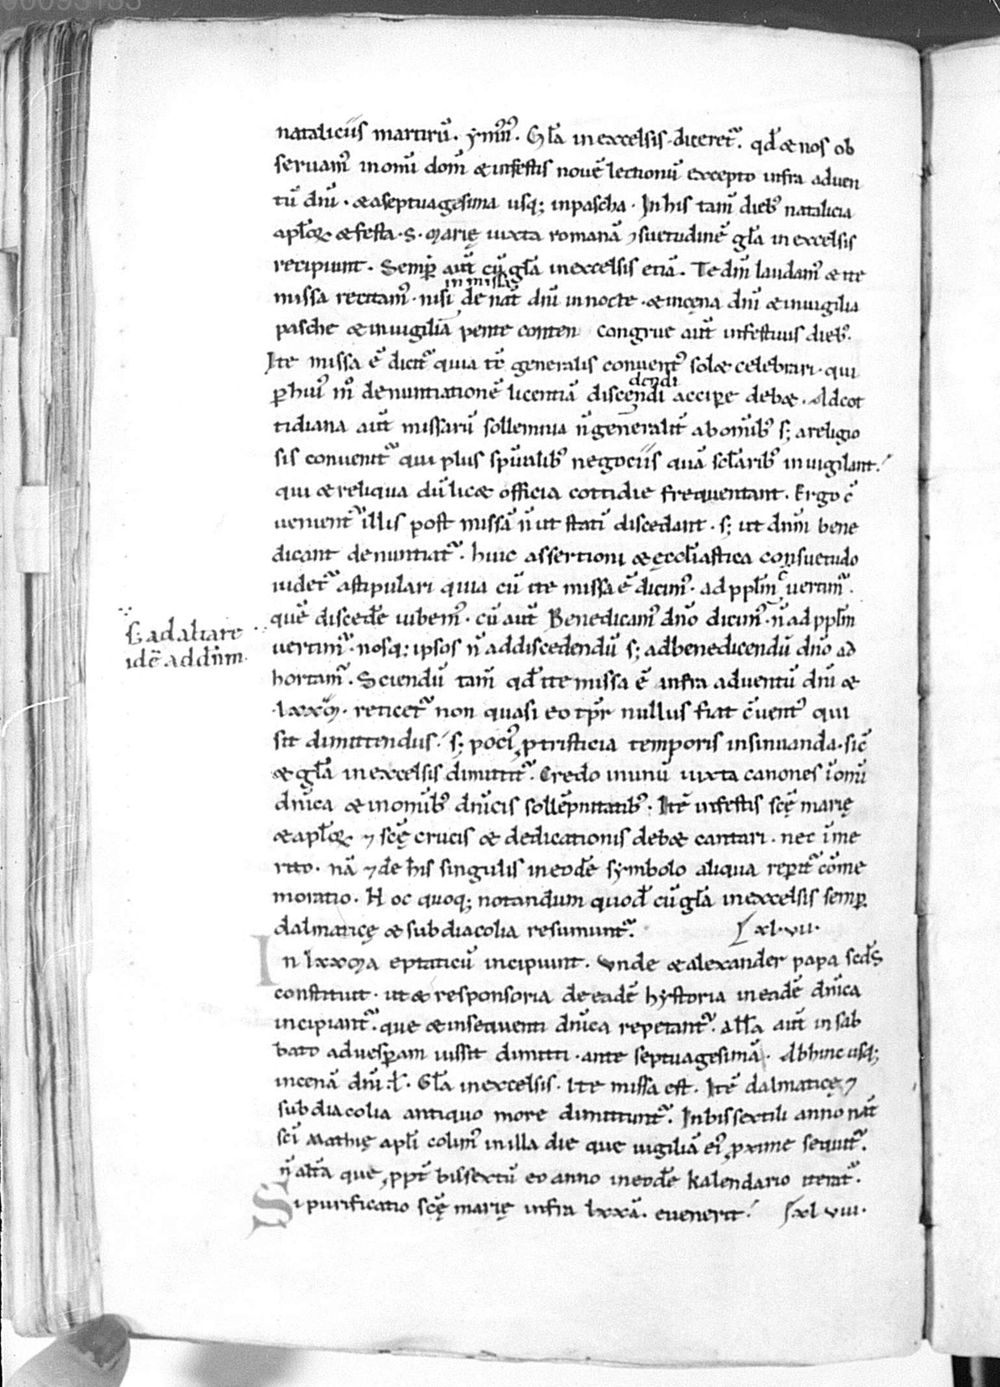 nataliciis martirũ. ymn̄. Gl̄a in excelsis diceret᷑. qd̄ & nos ob
seruam᷒ in omī dom̄ & in festis nouē lectionū excepto infra aduen
tū dn̄i. & a septuagesima usq; in pascha. In his tam̄ dieb᷒ natalicia
apl̄oꝝ & festa. S. Marię iuxta romanā ɔsuetudinē gl̄a in excelsis
recipiunt. Semꝑ aut̄ cū gl̄a in excelsis etiā. Te dm̄ laudam᷒ & ite
in missis
missa recitam᷒. nisi de nat̄ dn̄i in nocte. & in cęna dn̄i & in uigilia
pasche & in uigilia pente costen congrue aut̄ in festiuis dieb᷒.
Ite missa ē dicit᷑ quia tc̄ generalis conuent᷒ sol& celebrari. qui
dendi
ꝑ hui᷒ m̊ denuntiationē licentiā discendi accipe deb&. Ad cot
tidiana aut̄ missarū sollemnia n̄ generalit̄ ab omīb᷒ s; a religio
sis conuenit᷑ qui plus sp̄ualib᷒ negociis quā sc̄larib᷒ inuigilant.
qui & reliqua diu lic& officia cottidie frequentant. Ergo c̄
uenient᷑ illis post missā n̄ ut statī discedant. s; ut dn̄m bene
dicant denuntiat᷑. huic assertioni & ęccl̄iastica consuetudo
uidet᷑ astipulari quia cū ite missa ē dicim᷒. ad ppl̄m uertim᷑.
quē disced̄e iubem᷒. cū aut̄ Benedicam᷒ dn̄o dicim᷒. n̄ ad ppl̄m
ł ad altare
idē ad dn̄m.
uertim᷑. nosq; ipsos n̄ ad discedendū s; ad benedicendū dn̄o ad
hortam᷑. Sciendū tam̄ qd̄ ite missa ē infra aduentū dn̄i &
.lxxm̄. reticet᷑ non quasi eo tp̄r nullus fiat c̄uent᷒ qui
sit dimittendus. s; poci᷒ ꝓ tristicia temporis insinuanda. sic̄
& gl̄a in excelsis dimittit᷑. Credo in unū iuxta canones ī omī
dn̄ica & in omīb᷒ dn̄icis sollēpnitatib᷒. Itē in festis scę̄ marię
& apl̄oꝝ ⁊ scę̄ crucis & dedicationis deb& cantari. nec īme
rito. nā ⁊ de his singulis in eod̄e symbolo aliqua reperit᷑ cōme
moratio. Hoc quoq; notandum quod cū gl̄a in excelsis semꝑ
dalmaticę & subdiacolia resumunt᷑. xl.vii.
In lxxma eptaticū incipiunt. Vnde & alexander papa scd̄s
constituit. ut & responsoria de eadē hystoria in eadē dn̄ica
incipiant᷑. que & in sequenti dn̄ica repetant᷑. all̄a aut̄ in sab
bato ad uesꝑam iussit dimitti. ante septuagesimā. Ab hinc usq;
in cenā dn̄i. ł. Gl̄a in excelsis. Ite missa est. Itē dalmaticę ⁊
subdiacolia antiquo more dimittunt᷑. In bissextili anno nat̄
sc̄i Mathię apl̄i colim᷒ in illa die que uigiliā ei᷒ ꝓxime sequit᷑.
n̄ alt̄a que ꝓpt̄ bissextū eo anno in eod̄e kalendario iterat᷑.
Si purificatio scę̄ marię infra lxxā. euenerit. xl.viii.